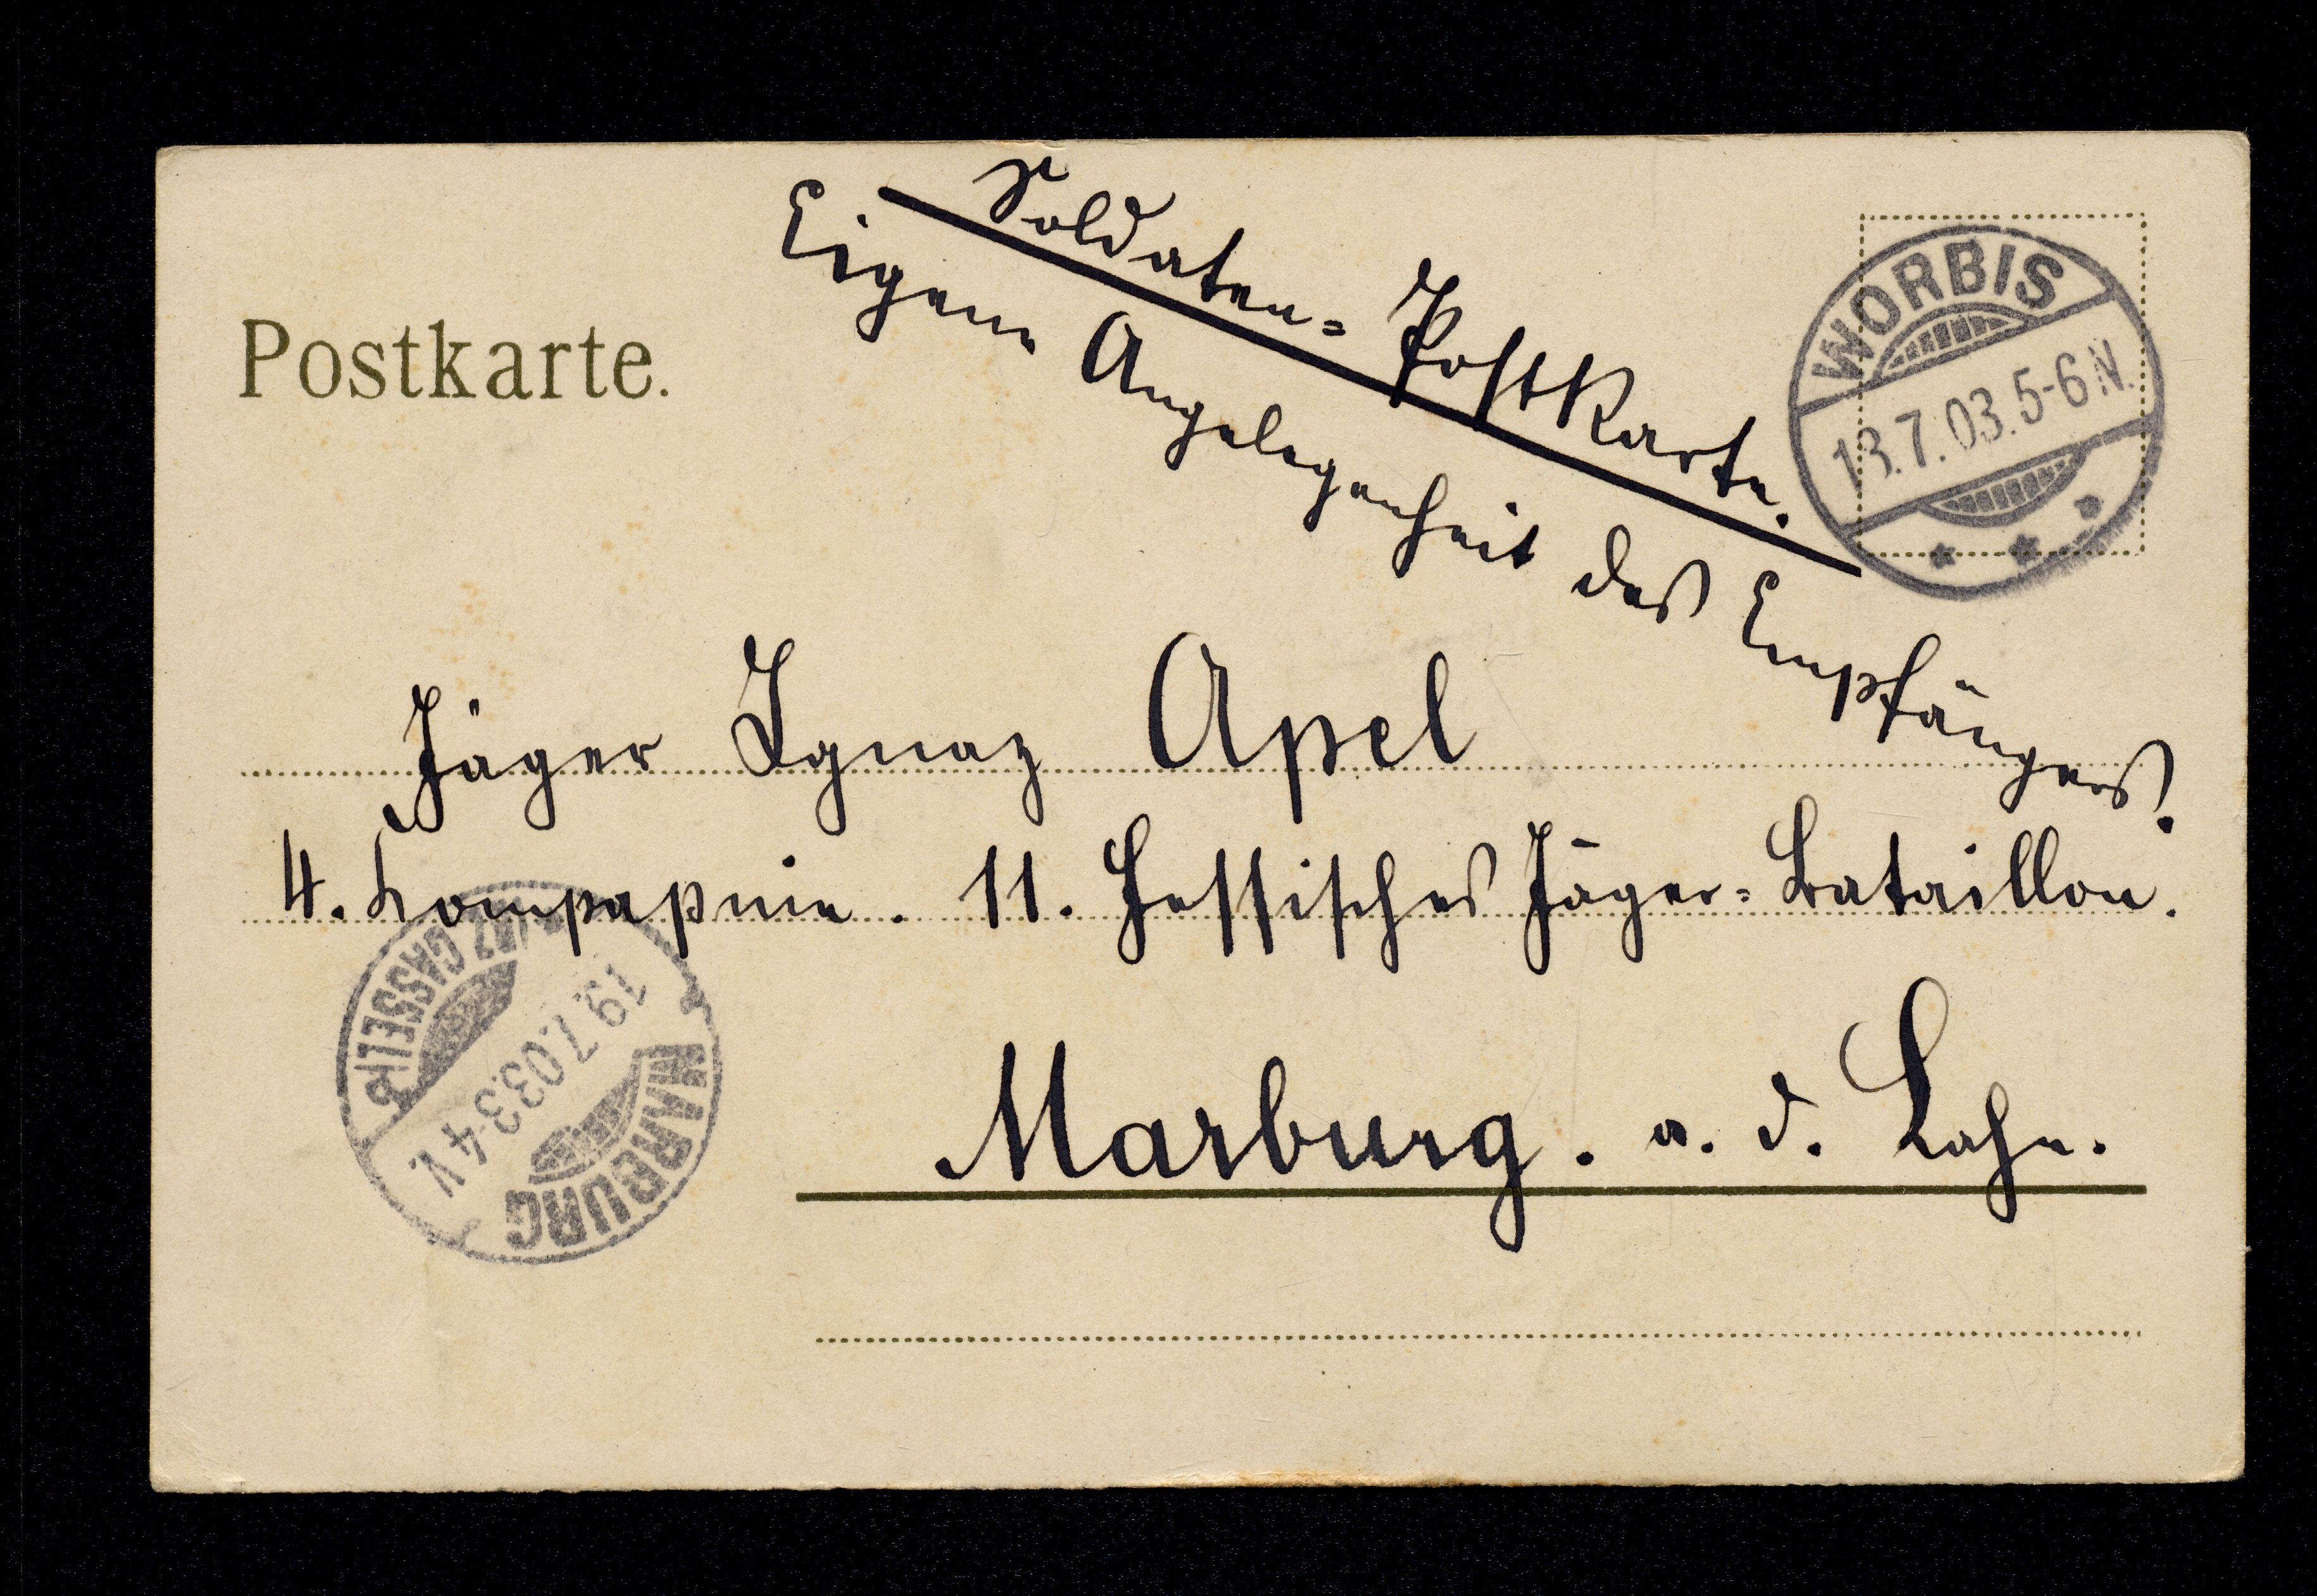 Soldaten-Postkarte.
Eigene Angelegenheit des Empfängers.
Postkarte.
WORBIS
13.7.03.5-6N.
Jäger Ignaz Apel
4. Kompapnie. 11. Hessisches Jäger-Bataillon.
Marburg. a. d. Lahn.
MARBURG
19.7.03.3-4V.